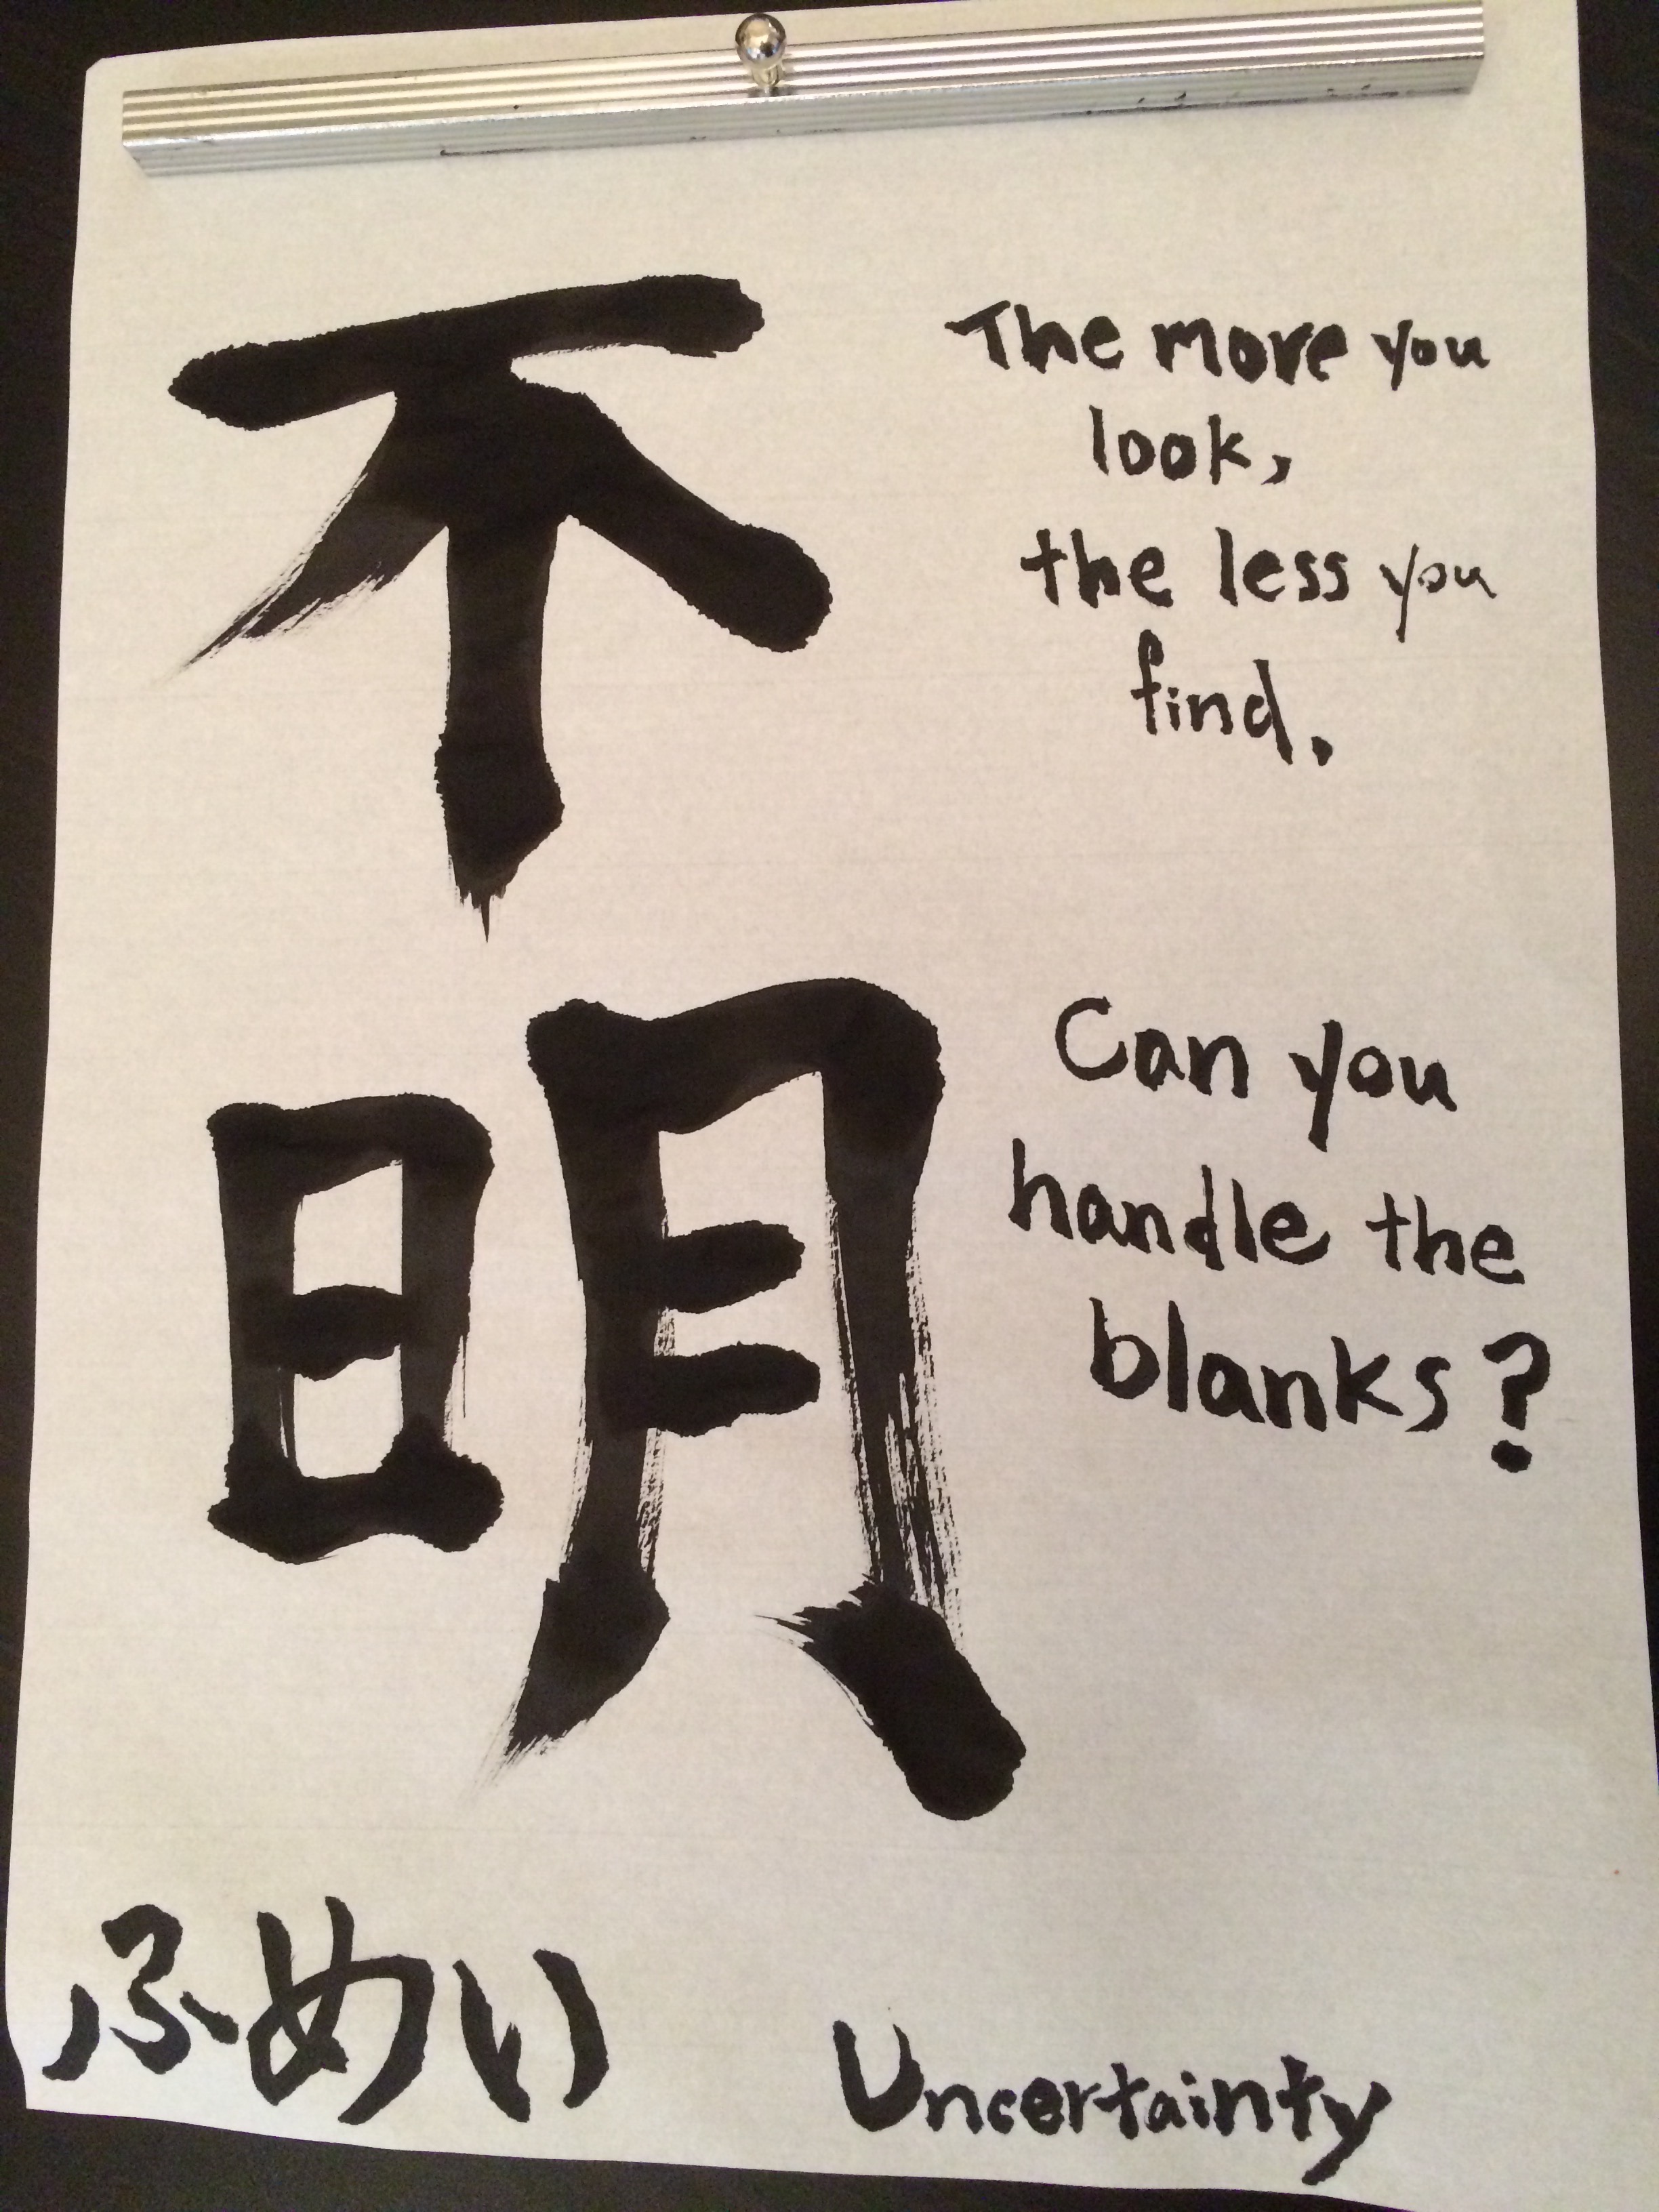 不明
The more you
look,
the less you
find.
Can you
handle the
blanks?
ふめい
Uncertainty